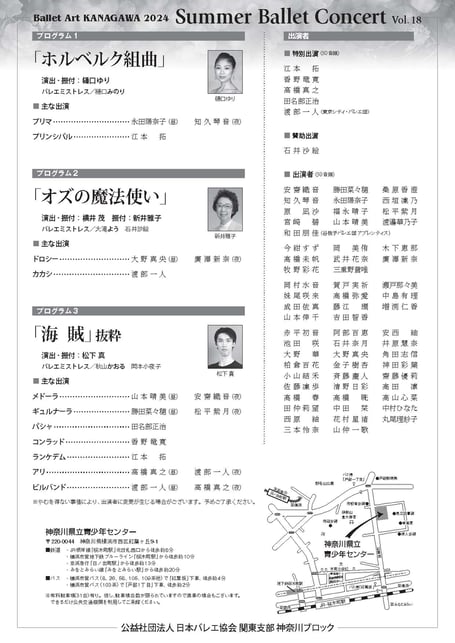 Ballet Art KANAGAWA 2024 Summer Ballet Concert Vol. 18
プログラム 1
「ホルベルク組曲」
演出・振付：樋口ゆり
バレエミストレス／樋口みのり
樋口ゆり
■ 主な出演
プリマ 永田陽奈子(昼) 知久琴音(夜)
プリンシパル 江本 拓
プログラム 2
「オズの魔法使い」
演出・振付：横井 茂 振付：新井雅子
バレエミストレス／大滝よう 石井沙絵
新井雅子
■ 主な出演
ドロシー 大野真央(昼) 廣瀬新奈(夜)
カカシ 渡部一人
プログラム 3
「海 賊」抜粋
演出・振付：松下 真
バレエミストレス／秋山かおる 岡本小夜子
松下 真
■ 主な出演
メドーラ 山本晴美(昼) 安齋織音(夜)
ギュルナーラ 勝田菜々穂(昼) 松平紫月(夜)
パシャ 田名部正治
コンラッド 香野竜寛
ランケデム 江本 拓
アリ 高橋真之(昼) 渡部一人(夜)
ビルバンド 渡部一人(昼) 高橋真之(夜)
※やむを得ない事情により、出演者に変更が生じる場合がございます。予めご了承ください。
出演者
■ 特別出演(50音順)
江本 拓
香野竜寛
高橋真之
田名部正治
渡部一人(東京シティ・バレエ団)
■ 賛助出演
石井沙絵
■ 出演者(50音順)
安齋織音 勝田菜々穂 桑原香澄
知久琴音 永田陽奈子 西垣凜乃
原 凪沙 福永晴子 松平紫月
宮崎 碧 山本晴美 渡邊華乃子
和田朋佳(谷桃子バレエ団アプレンティス)
今紺すず 岡 美侑 木下恵那
高橋未帆 武井花奈 廣瀬新奈
牧野彩花 三栗野蕾唯
岡村水音 賀戸実祈 瀬戸那々美
妹尾咲来 高橋弥愛 中島有理
成田依真 藤江 環 増渕仁香
山本倖千 吉田智香
赤平初音 阿部百恵 安西 結
池田 咲 石井奈月 井原慧奈
大野 華 大野真央 角田志信
柏倉百花 金子樹杏 神田彩葉
小山結禾 斉藤慶人 齋藤優莉
佐藤凜歩 清野日彩 高田 凛
高橋 春 高橋 暁 高山心菜
田仲莉望 中田 栞 中村ひなた
西原 結 花村星渚 丸尾理紗子
三本怜奈 山仲一歌
神奈川県立青少年センター
〒220-0044 神奈川県横浜市西区紅葉ヶ丘9-1
■鉄道 ・JR根岸線「桜木町駅」北改札西口から徒歩約8分
・横浜市営地下鉄ブルーライン「桜木町駅」から徒歩約10分
・京浜急行「日ノ出町駅」から徒歩約13分
・みなとみらい線「みなとみらい駅」から徒歩約20分
■バス
神奈川県立
青少年センター
公益社団法人 日本バレエ協会 関東支部 神奈川ブロック